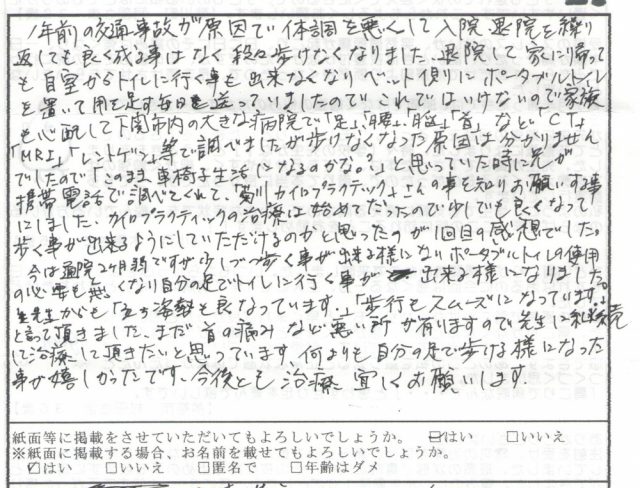 1年前の交通事故が原因で体調を悪くして入院、退院を繰り
返しても良く成る事はなく段々歩けなくなりました、退院して家に帰って
も自室からトイレに行く事も出来なくなりベット側りにポータブルトイレ
を置いて用を足す毎日を送っていましたのでこれではいけないので家族
も心配して下関市内の大きな病院で「足」「腰」「脳」「首」などCT」
「MRI」「レントゲン」等で調べましたが歩けなくなった原因は分かりません
でしたので「このまま車椅子生活になるのかな。?」と思っていた時に兄が
携帯電話で調べてくれて、「菊川カイロプラクティック」さんの事を知りお願いする事
にしました、カイロプラクティックの治療は始めてだったので少しでも良くなって
歩く事が出来るようにしていただけるのかと思ったのが1回目の感想でした。
今は通院2ヶ月弱ですが少しづつ歩く事が出来る様になりポータブルトイレの使用
の必要も無くなり自分の足でトイレに行く事が出来る様になりました。
先生からも「立ち姿勢も良くなっています。」「歩行もスムーズになっています。」
と言って頂きました、まだ首の痛みなど悪い所が有りますので先生に
して治療して頂きたいと思っています、何よりも自分の足で歩ける様になった
事が嬉しかったです、今後とも治療宜しくお願いします、
紙面等に掲載をさせていただいてもよろしいでしょうか。 ☑はい □いいえ
※紙面に掲載する場合、お名前を載せてもよろしいでしょうか。
☑はい □いいえ □匿名で □年齢はダメ